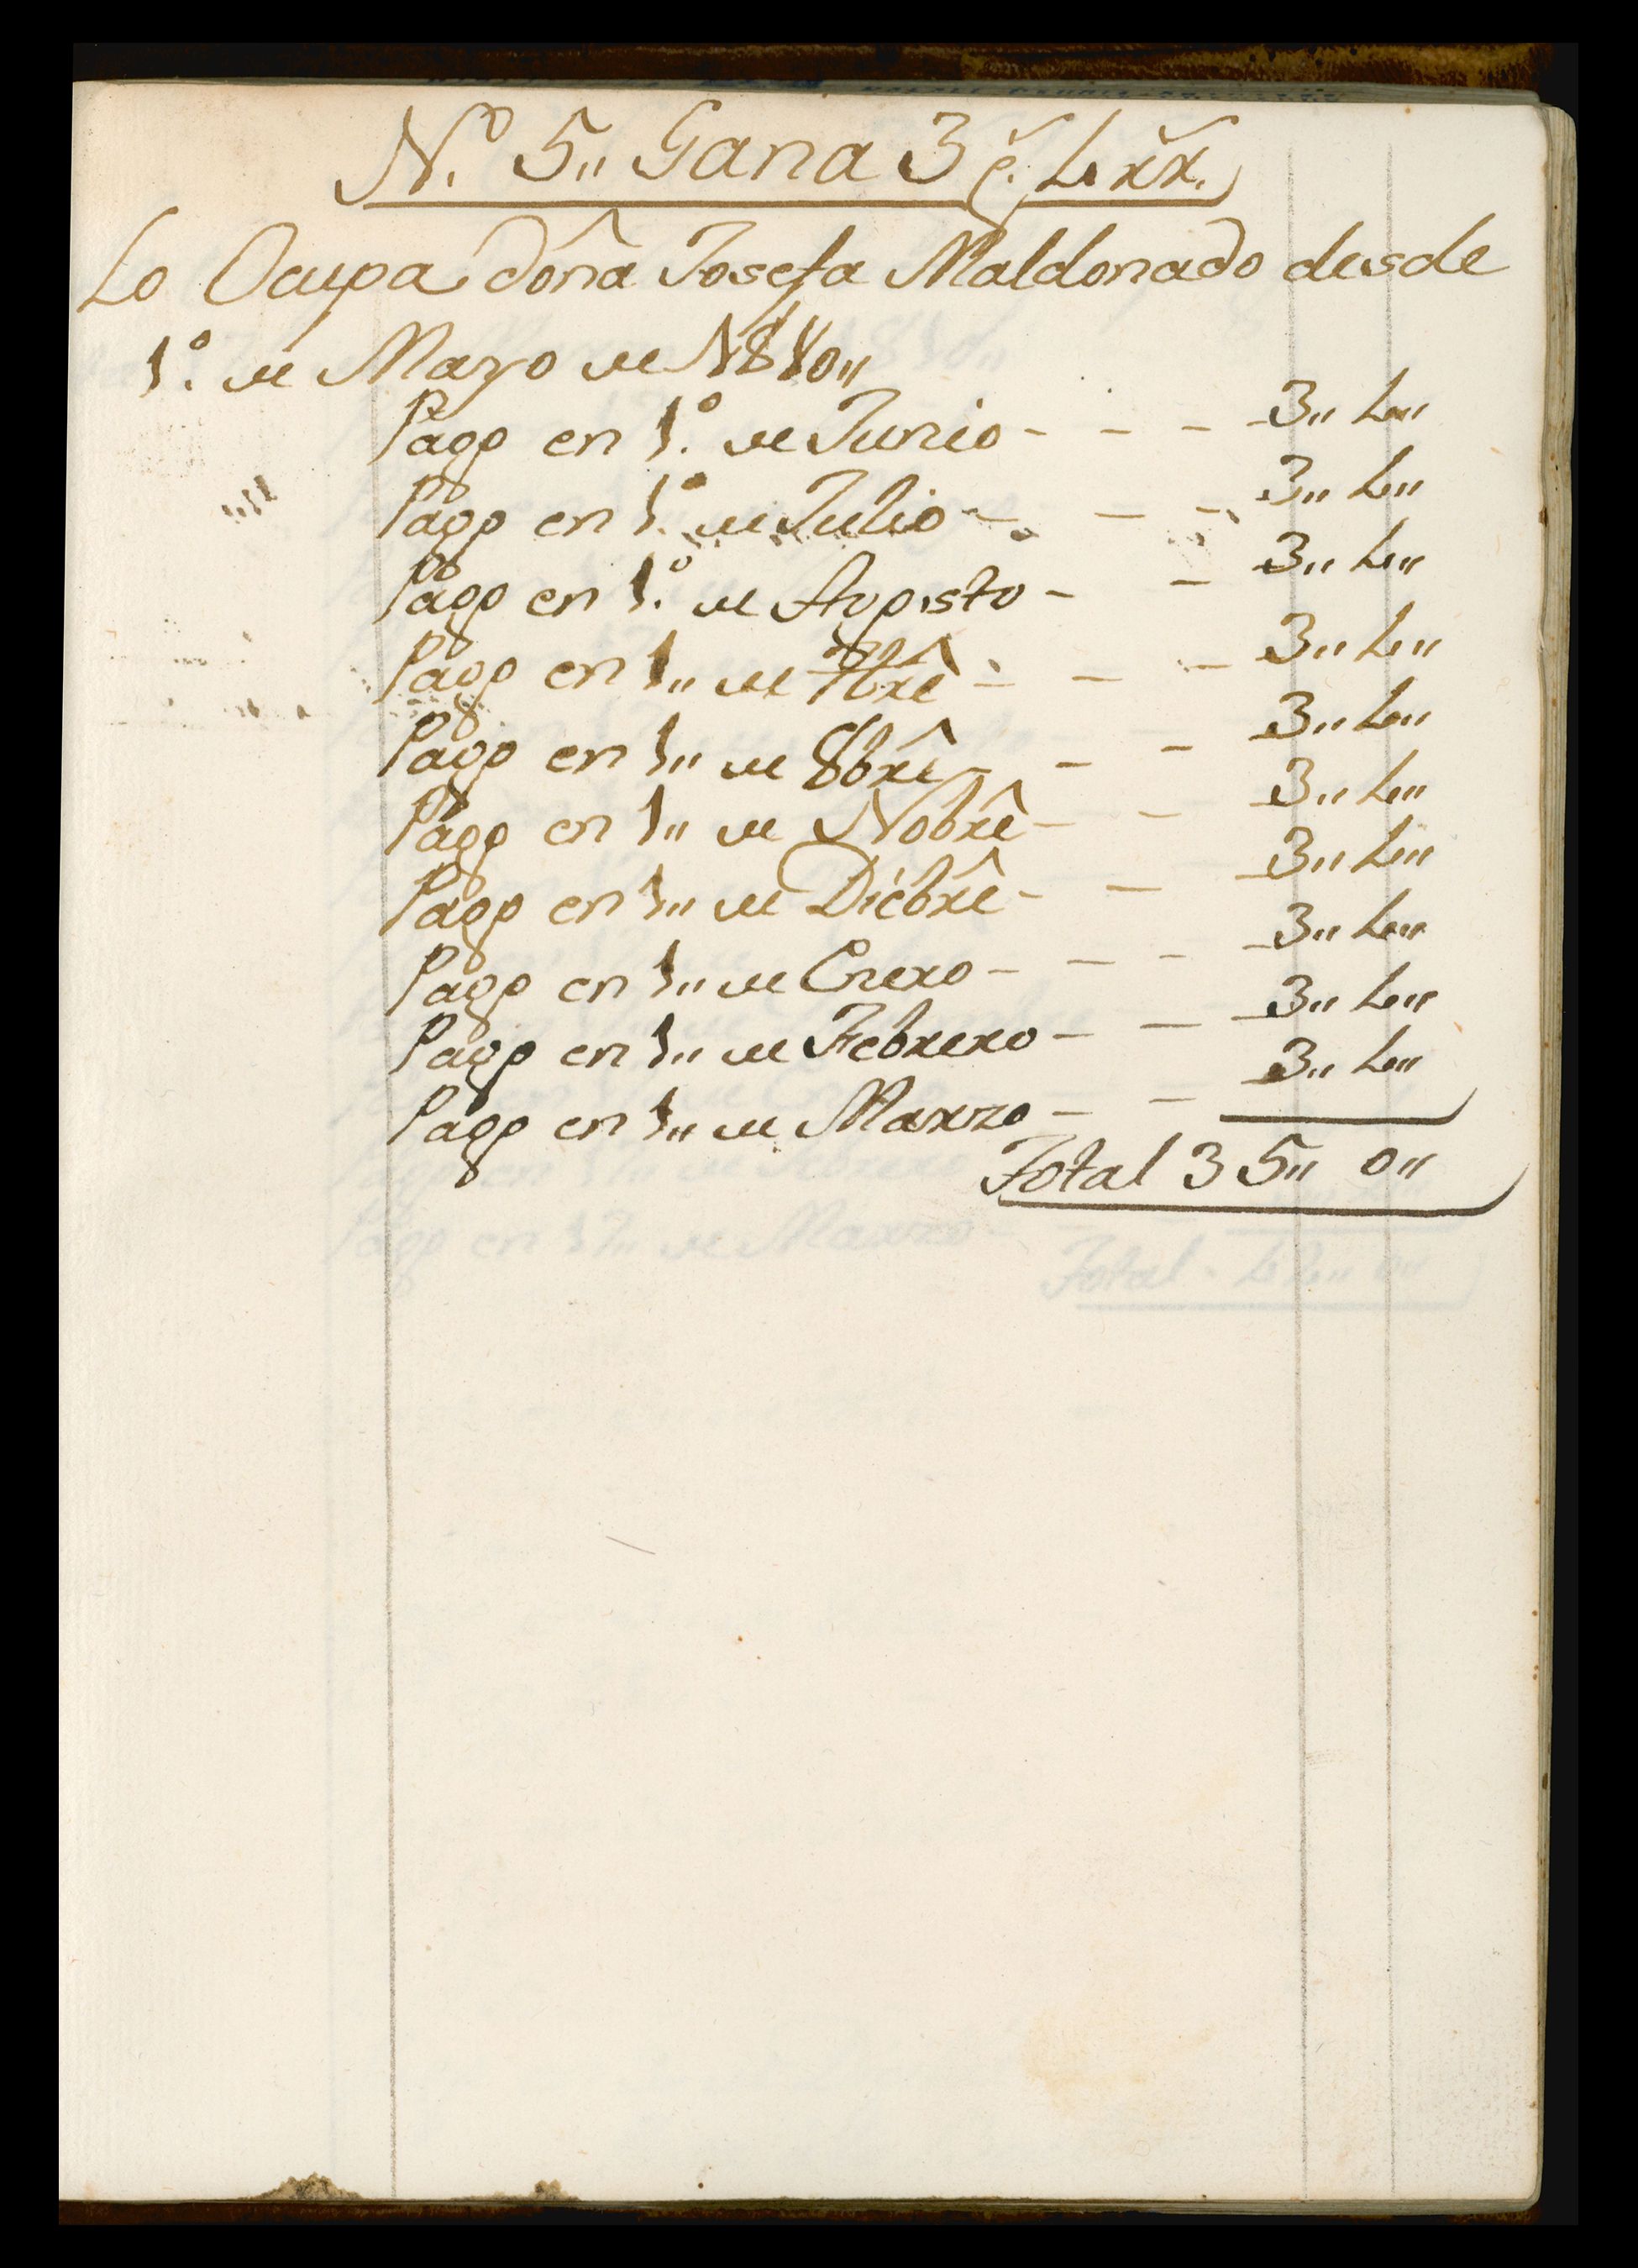 N.º 5,, Gana 3 p.ˢ 4 rr.ˢ
Lo Ocupa doña Josefa Maldonado desde
1.º de Mayo de 1810,,
Pago en 1.º de Junio - - - - 3,, 4,,
Pago en 1.º de Julio - - - 3,, 4,,
Pago en 1.º de Agosto - - 3,, 4,,
Pago en 1,, de 7brê - - - 3,, 4,,
Pago en 1,, de 8brê - - - 3,, 4,,
Pago en 1,, de Nobrê - - 3,, 4,,
Pago en 1,, de Diebrê - - 3,, 4,,
Pago en 1,, de Enero - - - 3,, 4,,
Pago en 1,, de Febrero - - 3,, 4,,
Pago en 1,, de Marzo - - 3,, 4,,
Total 35,, 0,,